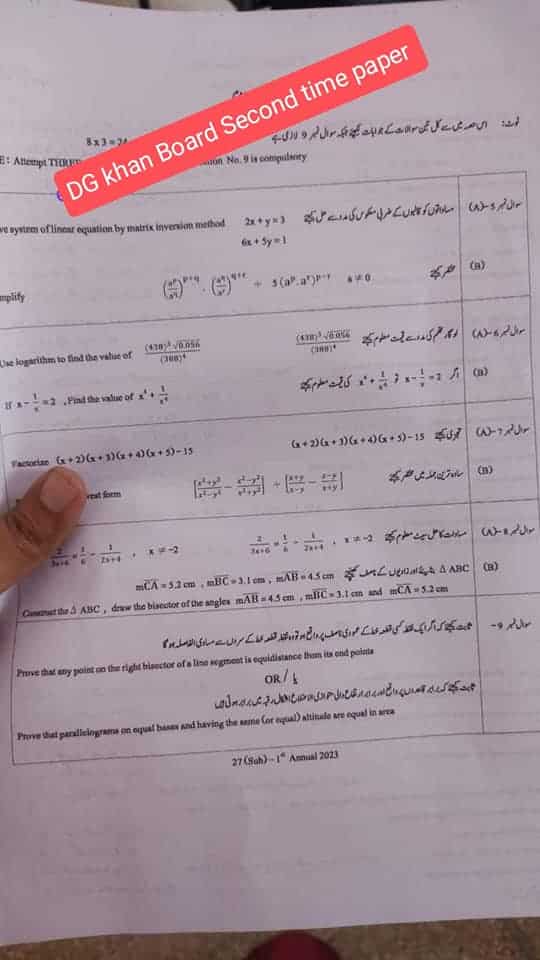 DG khan Board Second time paper
8 x 3 = 24
نوٹ: اس حصہ میں سے کل تین سوالات کے جوابات لکھئے جبکہ سوال نمبر 9 لازمی ہے
E: Attempt THREE No. 9 is compulsory
سوال نمبر 5-(A) مساواتوں کو قالبوں کے ضربی معکوس کی مدد سے حل کیجئے 2x + y = 3
ve system of linear equation by matrix inversion method
6x + 5y = 1
(B) مختصر کیجئے
mplify (a^p/a^q)^{p+q} . (a^q/a^r)^{q+r} ÷ 5(a^p.a^r)^{p-r} a ≠ 0
سوال نمبر 6-(A) لوگارتھم کی مدد سے قیمت معلوم کیجئے (438)³√0.056/(388)⁴
Use logarithm to find the value of (438)³√0.056/(388)⁴
(B) اگر x - 1/x = 2 تو x⁴ + 1/x⁴ کی قیمت معلوم کیجئے
If x - 1/x = 2 , Find the value of x⁴ + 1/x⁴
سوال نمبر 7-(A) تجزی کیجئے (x+2)(x+3)(x+4)(x+5)-15
Factorize (x+2)(x+3)(x+4)(x+5)-15
(B) سادہ ترین جملہ میں مختصر کیجئے
west form [x²+y²/x²-y² - x²-y²/x²+y²] ÷ [x+y/x-y - x-y/x+y]
سوال نمبر 8-(A) مساوات کا حل سیٹ معلوم کیجئے 2/3x+6 = 1/6 - 1/2x+4 , x ≠ -2
2/3x+6 = 1/6 - 1/2x+4 , x ≠ -2
(B) Δ ABC بنائیے اور زاویوں کے ناصف کھینچئے mCA = 5.2 cm , mBC = 3.1 cm , mAB = 4.5 cm
Construct the Δ ABC , draw the bisector of the angles mAB = 4.5 cm , mBC = 3.1 cm and mCA = 5.2 cm
سوال نمبر 9- ثابت کیجئے کہ اگر ایک نقطہ کسی قطعہ خط کے عمودی ناصف پر واقع ہو تو وہ نقطہ قطعہ خط کے سروں سے مساوی الفاصلہ ہو گا
Prove that any point on the right bisector of a line segment is equidistance from its end points
OR / یا
ثابت کیجئے کہ برابر قاعدوں پر واقع اور برابر ارتفاع والی متوازی الاضلاع اشکال رقبہ میں برابر ہوتی ہیں
Prove that parallelograms on equal bases and having the same (or equal) altitude are equal in area
27 (Sub) - 1st Annual 2023